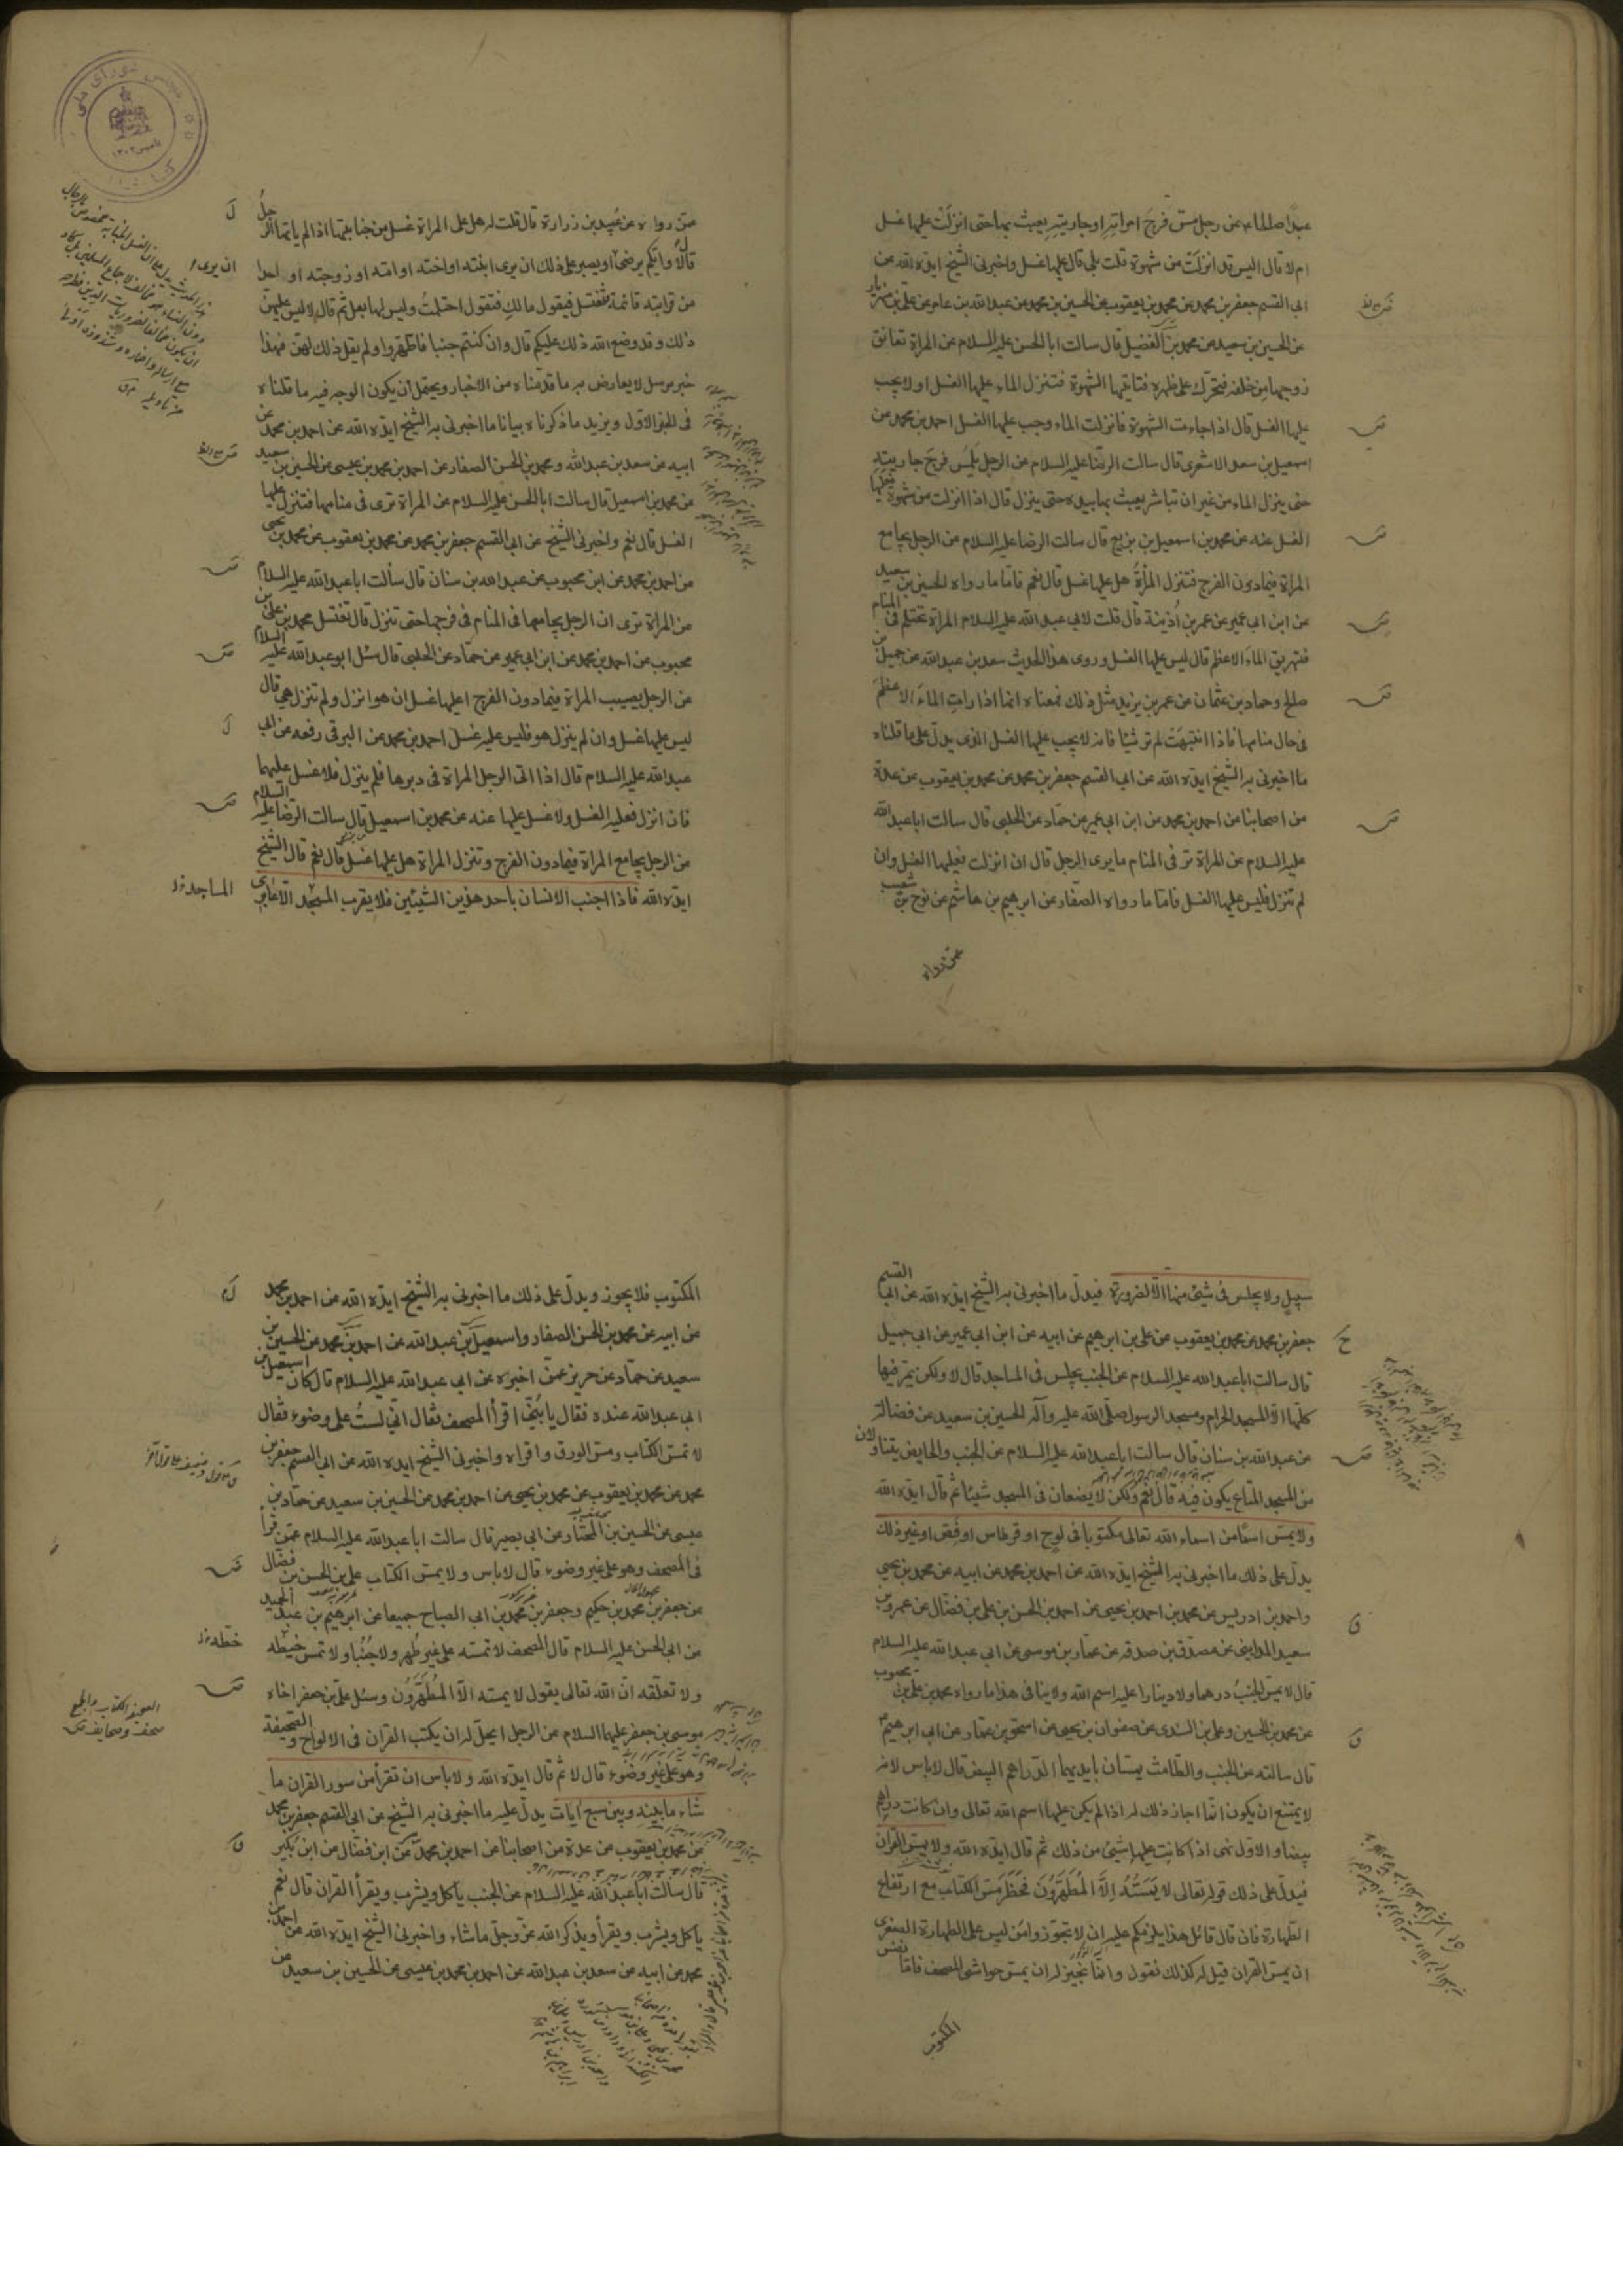 عبداصلماء عن رجل مس فرج امراته او جاريته يعبث بها حتى انزلت عليها غسل
ام لا قال اليس قد انزلت من شهوة قلت بلى قال عليها غسل واخبرنى الشيخ ايده الله عن
ابى القسم جعفر بن محمد عن محمد بن يعقوب عن الحسين بن محمد عن عبدالله بن عامر عن على بن مهزيار
عن الحسين بن سعيد عن محمد بن الفضيل قال سالت ابا الحسن عليه السلام عن المراة تعانق
زوجها من خلفه فتحرك على ظهره فتاتيها الشهوة فتنزل الماء عليها الغسل او لا يجب
عليها الغسل قال اذا جاءت الشهوة فانزلت الماء وجب عليها الغسل احمد بن محمد عن
اسمعيل بن سعد الاشعرى قال سالت الرضا عليه السلام عن الرجل يلمس فرج جاريته
حتى ينزل الماء من غير ان تباشر يعبث بها بيده حتى ينزل قال اذا انزلت من شهوة فعليها
الغسل عنه عن محمد بن اسمعيل بن بزيع قال سالت الرضا عليه السلام عن الرجل يجامع
المراة فيما دون الفرج فتنزل المرأة هل عليها غسل قال نعم فاما ما رواه الحسين بن سعيد
عن ابن ابى عمير عن عمر بن اذينة قال قلت لابى عبدالله عليه السلام المراة تحتلم فى المنام
فتهريق الماء الاعظم قال ليس عليها الغسل وروى هذا الحديث سعد بن عبدالله عن جميل بن
صالح وحماد بن عثمان عن عمر بن يزيد مثل ذلك فمعناه انها اذا رات الماء الاعظم
فى حال منامها فاذا انتبهت لم تر شيئا فانه لا يجب عليها الغسل الذى يدل على ما قلناه
ما اخبرنى به الشيخ ايده الله عن ابى القسم جعفر بن محمد عن محمد بن يعقوب عن عدة
من اصحابنا عن احمد بن محمد عن ابن ابى عمير عن حماد عن الحلبى قال سالت ابا عبدالله
عليه السلام عن المراة ترى فى المنام ما يرى الرجل قال ان انزلت فعليها الغسل وان
لم تنزل فليس عليها الغسل فاما ما رواه الصفار عن ابرهيم بن هاشم عن نوح بن شعيب
عمن رواه
عمن رواه عن عبيد بن زرارة قال قلت له هل على المراة غسل من جنابتها اذا لم ياتها الرجل
قال لا وايكم يرضى او يصبر على ذلك ان يرى ابنته او اخته او امته او زوجته او احدا
من قرابته قائمة تغتسل فيقول مالك فتقول احتلمت وليس لها بعل ثم قال لا ليس عليهن
ذلك وقد وضع الله ذلك عليكم قال وان كنتم جنبا فاطهروا ولم يقل ذلك لهن فهذا
خبر مرسل لا يعارض به ما قدمناه من الاخبار ويحتمل ان يكون الوجه فيه ما قلناه
فى الخبر الاول ويزيد ما ذكرناه بيانا ما اخبرنى به الشيخ ايده الله عن احمد بن محمد عن
ابيه عن سعد بن عبدالله ومحمد بن الحسن الصفار عن احمد بن محمد بن عيسى عن الحسين بن سعيد
عن محمد بن اسمعيل قال سالت ابا الحسن عليه السلام عن المراة ترى فى منامها فتنزل عليها
الغسل قال نعم واخبرنى الشيخ عن ابى القسم جعفر بن محمد عن محمد بن يعقوب عن محمد بن يحيى
عن احمد بن محمد عن ابن محبوب عن عبدالله بن سنان قال سألت ابا عبدالله عليه السلام
عن المراة ترى ان الرجل يجامعها فى المنام فى فرجها حتى تنزل قال تغتسل محمد بن على بن
محبوب عن احمد بن محمد عن ابن ابى عمير عن حماد عن الحلبى قال سئل ابو عبدالله عليه السلام
عن الرجل يصيب المراة فيما دون الفرج اعليها غسل ان هو انزل ولم تنزل هى قال
ليس عليها غسل وان لم ينزل هو فليس عليه غسل احمد بن محمد عن البرقى رفعه عن ابى
عبدالله عليه السلام قال اذا اتى الرجل المراة فى دبرها فلم ينزل فلا غسل عليهما
فان انزل فعليه الغسل ولا غسل عليها عنه عن محمد بن اسمعيل قال سالت الرضا عليه السلام
عن الرجل يجامع المراة فيما دون الفرج وتنزل المراة هل عليها غسل قال نعم قال الشيخ
ايده الله فاذا اجنب الانسان باحد هذين الشيئين فلا يقرب المسجد الا عابرى
ان يرى
المساجد
سبيل ولا يجلس فى شىء منها الا لضرورة فيدل ما اخبرنى به الشيخ ايده الله عن ابى القسم
جعفر بن محمد عن محمد بن يعقوب عن على بن ابرهيم عن ابيه عن ابن ابى عمير عن ابى جميل
قال سالت ابا عبدالله عليه السلام عن الجنب يجلس فى المساجد قال لا ولكن يمر فيها
كلها الا المسجد الحرام ومسجد الرسول صلى الله عليه وآله الحسين بن سعيد عن فضالة
عن عبدالله بن سنان قال سالت ابا عبدالله عليه السلام عن الجنب والحايض يتناولان
من المسجد المتاع يكون فيه قال نعم ولكن لا يضعان فى المسجد شيئا ثم قال ايده الله
ولا يمس اسما من اسماء الله تعالى مكتوبا فى لوح او قرطاس او فص او غير ذلك
يدل على ذلك ما اخبرنى به الشيخ ايده الله عن احمد بن محمد عن ابيه عن محمد بن يحيى
واحمد بن ادريس عن محمد بن احمد بن يحيى عن احمد بن الحسن بن على بن فضال عن عمرو بن
سعيد المداينى عن مصدق بن صدقه عن عمار بن موسى عن ابى عبدالله عليه السلام
قال لا يمس الجنب درهما ولا دينارا عليه اسم الله ولا ينافى هذا ما رواه محمد بن على بن محبوب
عن محمد بن الحسين وعلى بن السندى عن صفوان بن يحيى عن اسحق بن عمار عن ابى ابرهيم
قال سالته عن الجنب والطامث يمسان بايديهما الدراهم البيض قال لا باس لانه
لا يمتنع ان يكون انما اجاز ذلك له اذا لم يكن عليها اسم الله تعالى وان كانت دراهم
بيضا والاول نهى اذا كانت عليها شىء من ذلك ثم قال ايده الله ولا يمس القران
فيدل على ذلك قوله تعالى لا يمسه الا المطهرون فحظر مس الكتاب مع ارتفاع
الطهارة فان قال قائل هذا يلزمكم عليه ان لا تجوزوا من ليس على الطهارة الصغرى
ان يمس القران قيل له كذلك نقول وانما نجيز له ان يمس حواشى المصحف فاما نفس
المكتوب
المكتوب فلا يجوز ويدل على ذلك ما اخبرنى به الشيخ ايده الله عن احمد بن محمد
عن ابيه عن محمد بن الحسن الصفار واسمعيل بن عبدالله عن احمد بن محمد عن الحسين بن
سعيد عن حماد عن حريز عمن اخبره عن ابى عبدالله عليه السلام قال كان اسمعيل بن
ابى عبدالله عنده فقال يا بنى اقرأ المصحف فقال انى لست على وضوء فقال
لا تمس الكتاب ومس الورق واقراه واخبرنى الشيخ ايده الله عن ابى القسم جعفر بن
محمد عن محمد بن يعقوب عن محمد بن يحيى عن احمد بن محمد عن الحسين بن سعيد عن حماد بن
عيسى عن الحسين بن المختار عن ابى بصير قال سالت ابا عبدالله عليه السلام عمن قرأ
فى المصحف وهو على غير وضوء قال لا باس ولا يمس الكتاب على بن الحسن بن فضال
عن جعفر بن محمد بن حكيم وجعفر بن محمد بن ابى الصباح جميعا عن ابرهيم بن عبد الحميد
عن ابى الحسن عليه السلام قال المصحف لا تمسه على غير طهر ولا جنبا ولا تمس خيطه
ولا تعلقه ان الله تعالى يقول لا يمسه الا المطهرون وسئل على بن جعفر اخاه
موسى بن جعفر عليهما السلام عن الرجل ايحل له ان يكتب القران فى الالواح والصحيفة
وهو على غير وضوء قال لا ثم قال ايده الله ولا باس ان تقرأ من سور القران ما
شاء ما بينه وبين سبع ايات يدل عليه ما اخبرنى به الشيخ عن ابى القسم جعفر بن محمد
عن محمد بن يعقوب عن عدة من اصحابنا عن احمد بن محمد عن ابن فضال عن ابن بكير
قال سالت ابا عبدالله عليه السلام عن الجنب ياكل ويشرب ويقرأ القران قال نعم
ياكل ويشرب ويقرأ ويذكر الله عز وجل ما شاء واخبرنى الشيخ ايده الله عن احمد بن
محمد عن ابيه عن سعد بن عبدالله عن احمد بن محمد بن عيسى عن الحسين بن سعيد عن
خطه